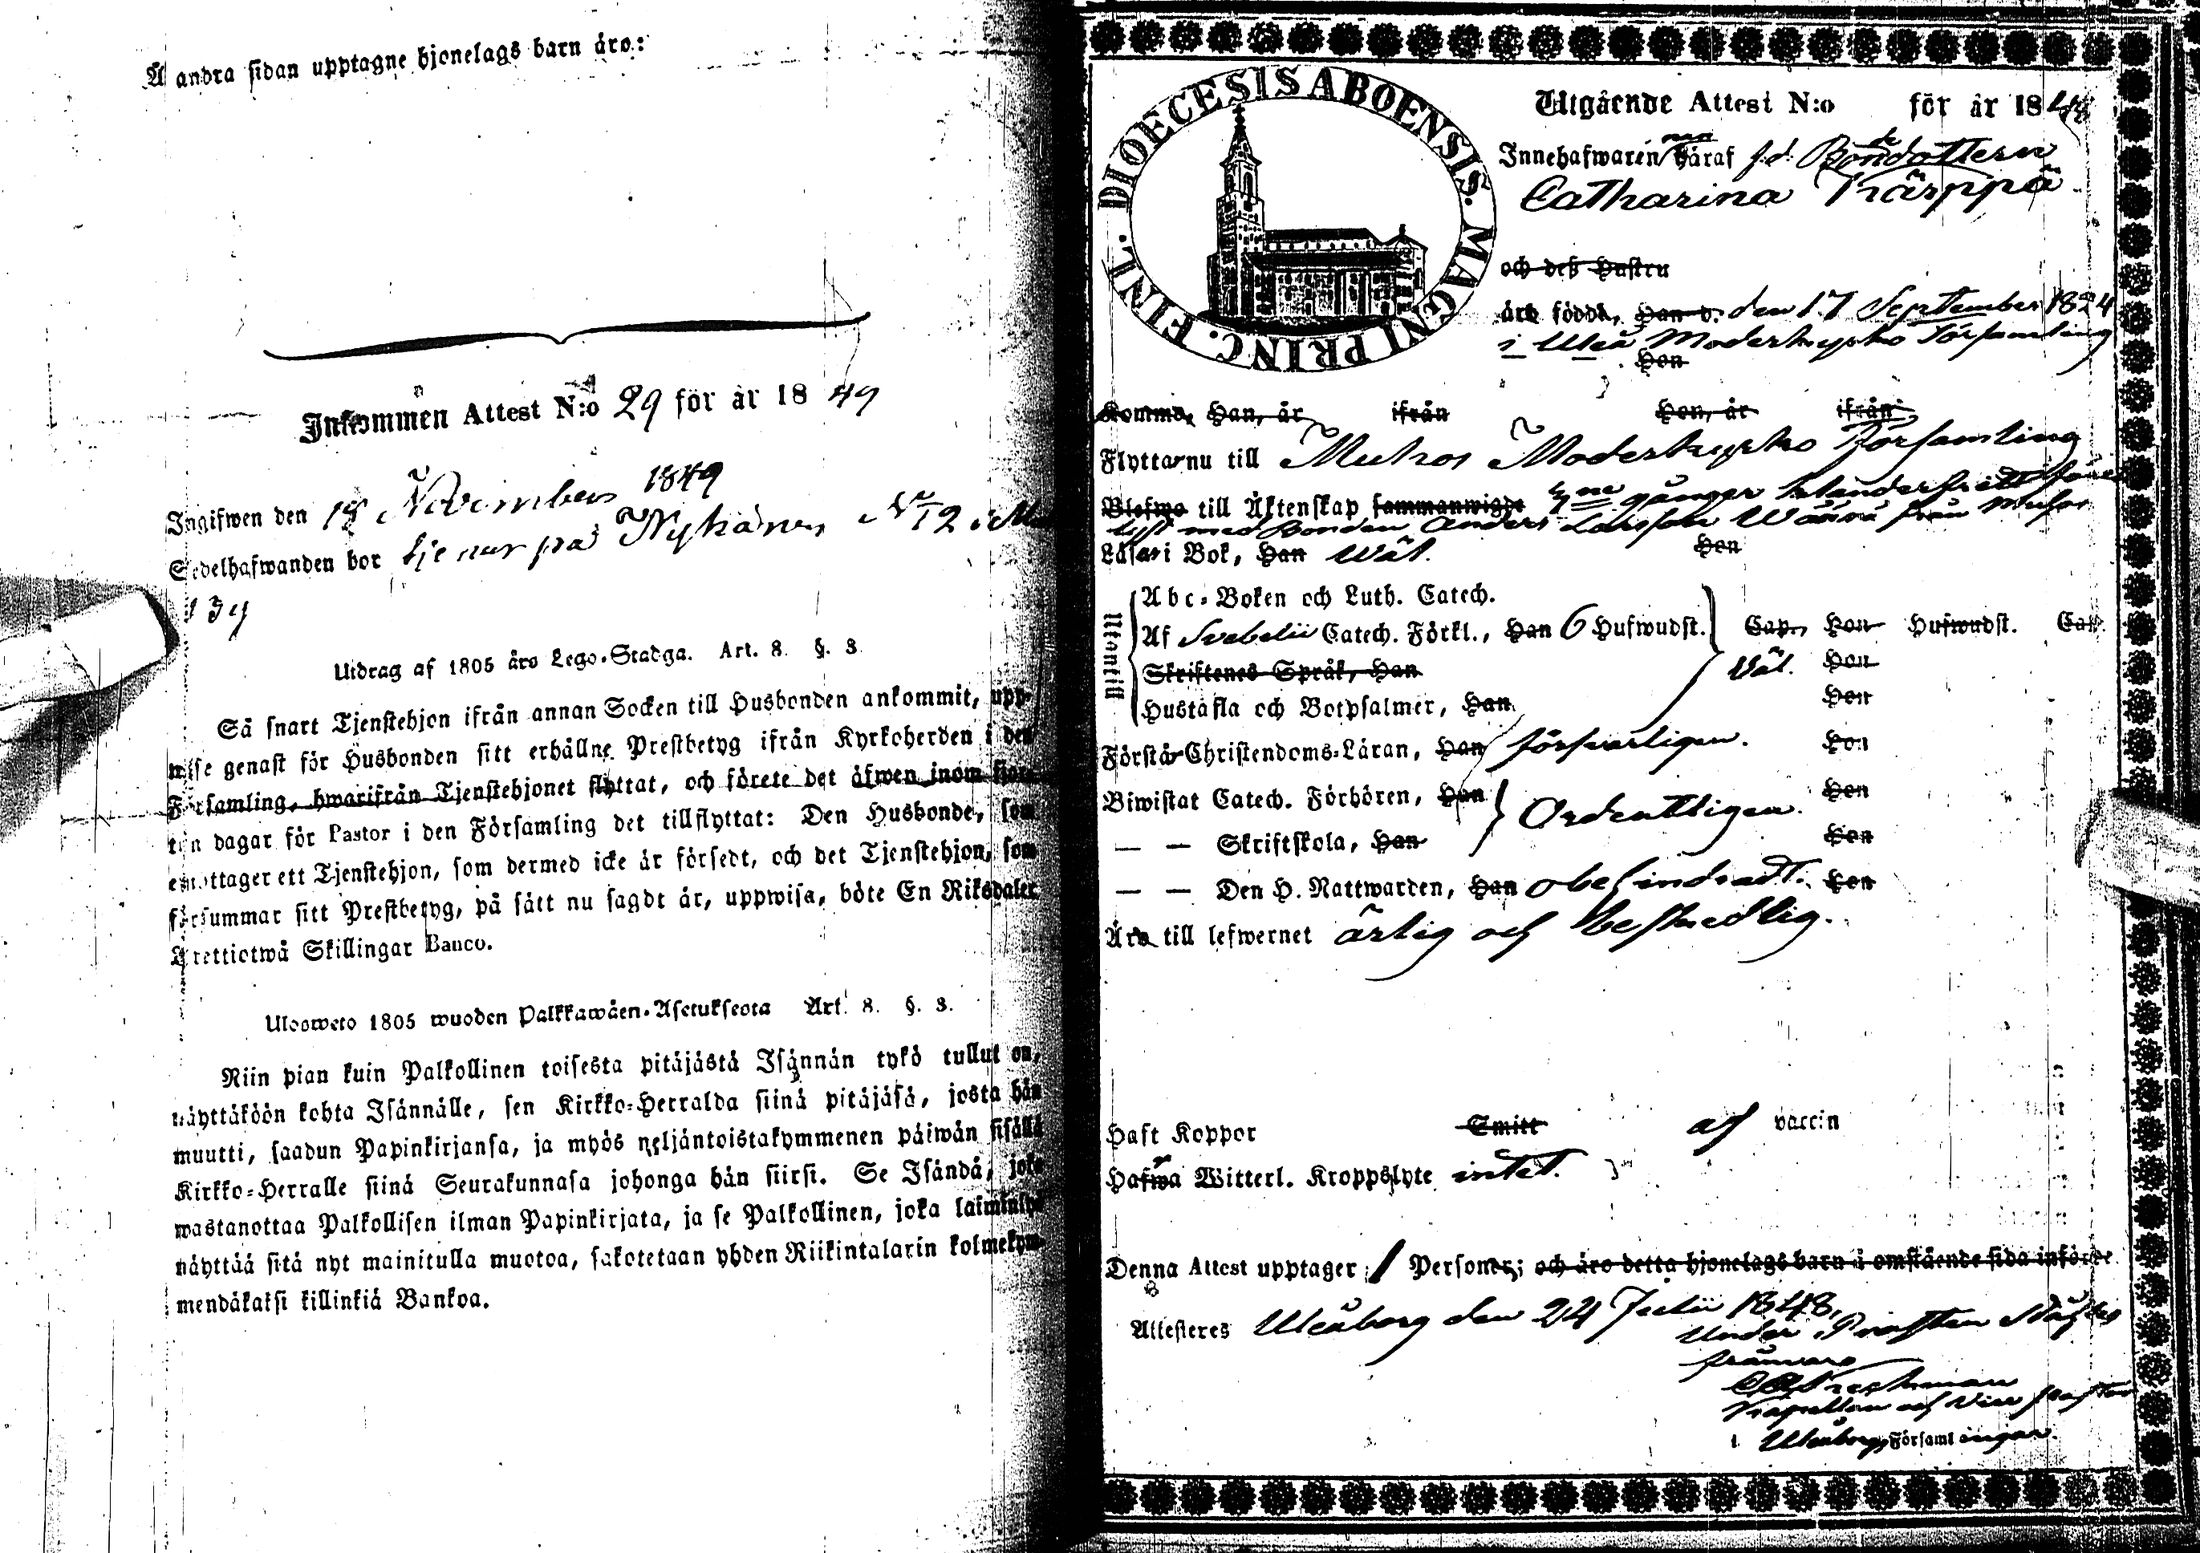 Å andra sidan upptagne hjonelags barn äro:
Inkommen Attest N:o 29 för år 1849
Ingifwen den 18 November 1849
Sedelhafwanden bor tjenar på Nyhänen N:o 12 i
139
Utdrag af 1805 års Lego-Stadga. Art. 8. §. 3.
Så snart Tjenstehjon ifrån annan Socken till Husbonden ankommit, upp-
wise genast för Husbonden sitt erhållne Prestbetyg ifrån Kyrkoherden i den
Församling, hwarifrån Tjenstehjonet flyttat, och förete det äfwen inom fjor-
ton dagar för Pastor i den Församling det tillflyttat: Den Husbonde, som
emottager ett Tjenstehjon, som dermed icke är försedt, och det Tjenstehjon, som
försummar sitt Prestbetyg, på sätt nu sagdt är, uppwisa, böte En Riksdaler
Trettiotwå Skillingar Banco.
Ulosweto 1805 wuoden Palkkawäen-Asetuksesta Art. 8. §. 3.
Niin pian kuin Palkollinen toisesta pitäjästä Isännän tykö tullut on,
näyttäköön kohta Isännälle, sen Kirkko-Herralda siinä pitäjäsä, josta hän
muutti, saadun Papinkirjansa, ja myös neljäntoistakymmenen päiwän sisällä
Kirkko-Herralle siinä Seurakunnasa johonga hän siirsi. Se Isändä, joka
wastanottaa Palkollisen ilman Papinkirjata, ja se Palkollinen, joka laiminlyö
näyttää sitä nyt mainitulla muotoa, sakotetaan yhden Riikintalarin kolmekym-
mendäkaksi killinkiä Bankoa.
DIOECESIS ABOENSIS. MAGNI PRINC. FINL.
Utgående Attest N:o för år 1848
Innehafwaren häraf f.d. Bondedottern
Catharina Kärppä
och deß Hustru
äro födde, Han d. den 17 September 1824
i Uleå Moderkyrko Församling
Hon
Komne, Han, år ifrån Hon, år ifrån
Flytta nu till Muhos Moderkyrko Församling
Blefwo till Äktenskap sammanwigde gånger
lyst med Bonden Anders Larsson från Muhos
Läsa i Bok, Han Wäl. Hon
Utantill
Abc-Boken och Luth. Catech.
Af Svebelii Catech. Förkl., Han 6 Hufwudst. Cap., Hon Hufwudst. Cap.
Skriftenes Språk, Han Wäl. Hon
Hustafla och Botpsalmer, Han Hon
Förstå Christendoms-Läran, Han försvarligen. Hon
Biwistat Catech. Förhören, Han Ordentligen. Hon
— — Skriftskola, Han Hon
— — Den H. Nattwarden, Han obehindradt. Hon
Äro till lefwernet ärlig och beskedlig.
Haft Koppor Smitt af vaccin
Hafwa Witterl. Kroppslyte intet.
Denna Attest upptager 1 Personer; och äro detta hjonelags barn å omstående sida införde
Attesteres Uleåborg den 24 Julii 1848.
Under Prosten
frånvaro
Kapellan och Vice Pastor
i Uleåborgs Församlingar.